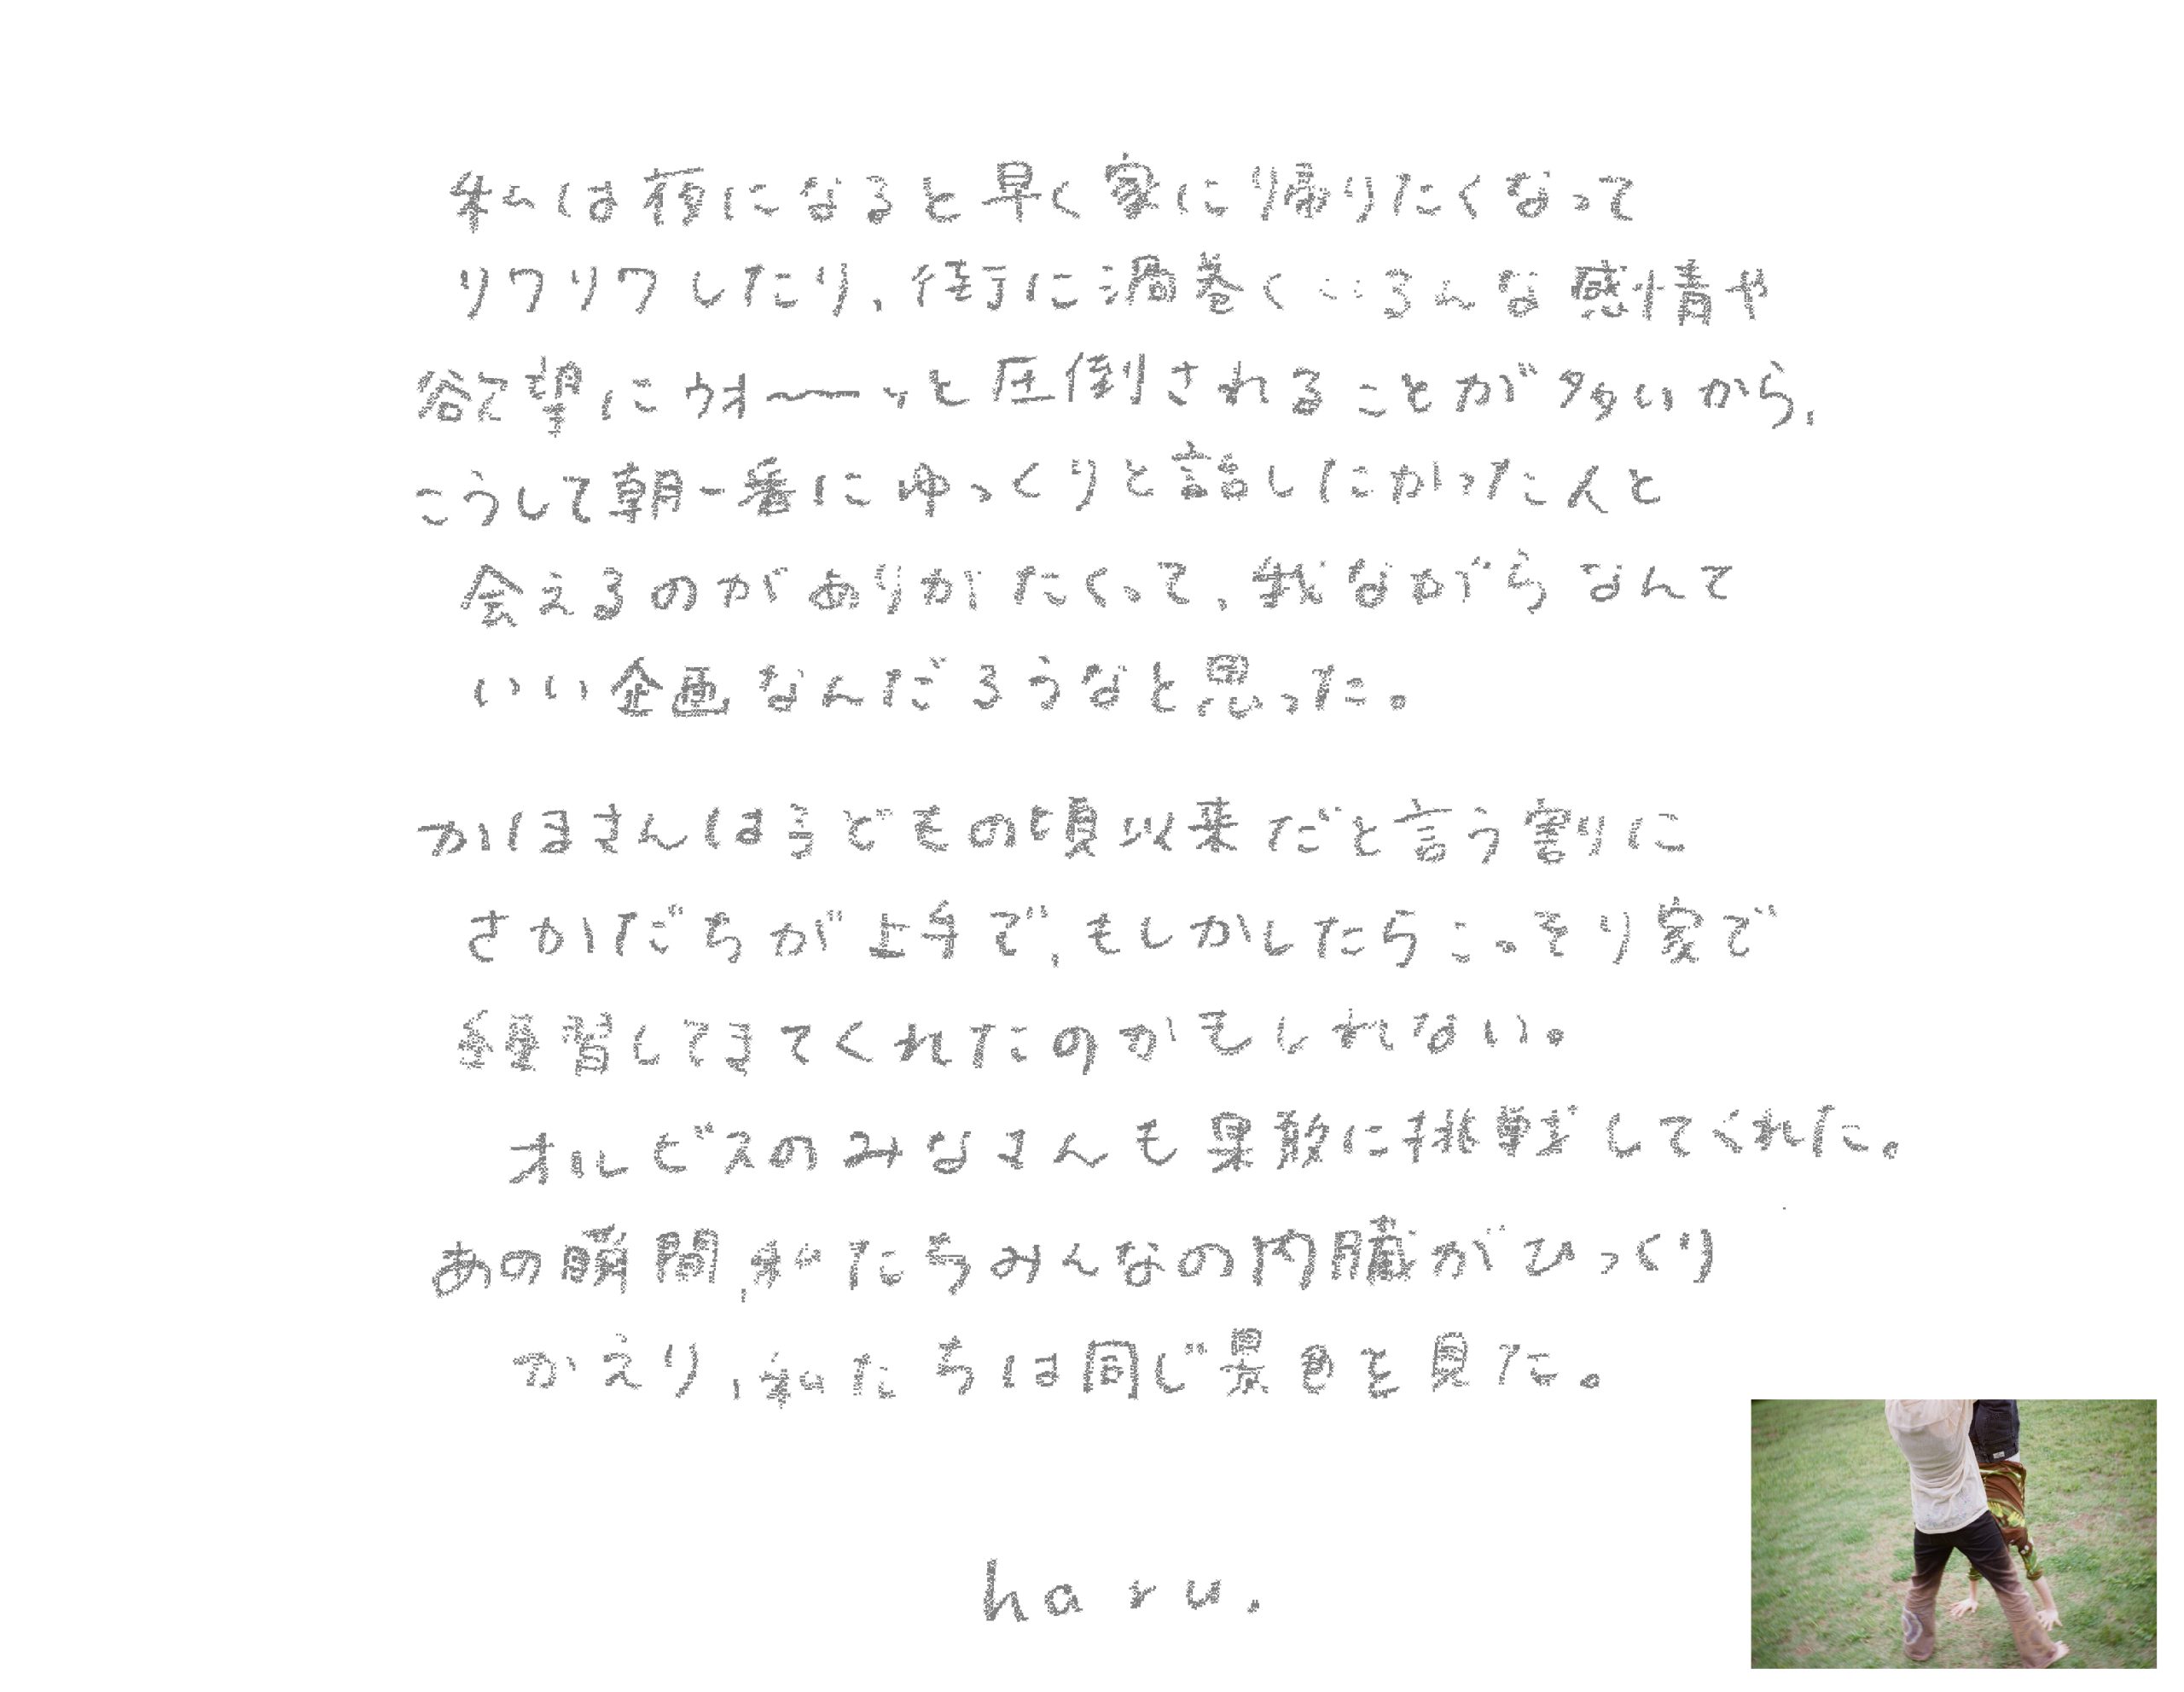 私は夜になると早く家に帰りたくなって
ソワソワしたり、街に渦巻くいろんな感情や
欲望にウオ〜〜ッと圧倒されることが多いから、
こうして朝一番にゆっくりと話したかった人と
会えるのがありがたくって、我ながらなんて
いい企画なんだろうなと思った。
かほさんは子どもの頃以来だと言う割りに
さかだちが上手で、もしかしたらこっそり家で
練習してきてくれたのかもしれない。
オルビスのみなさんも果敢に挑戦してくれた。
あの瞬間、私たちみんなの内臓がひっくり
かえり、私たちは同じ景色を見た。
haru.